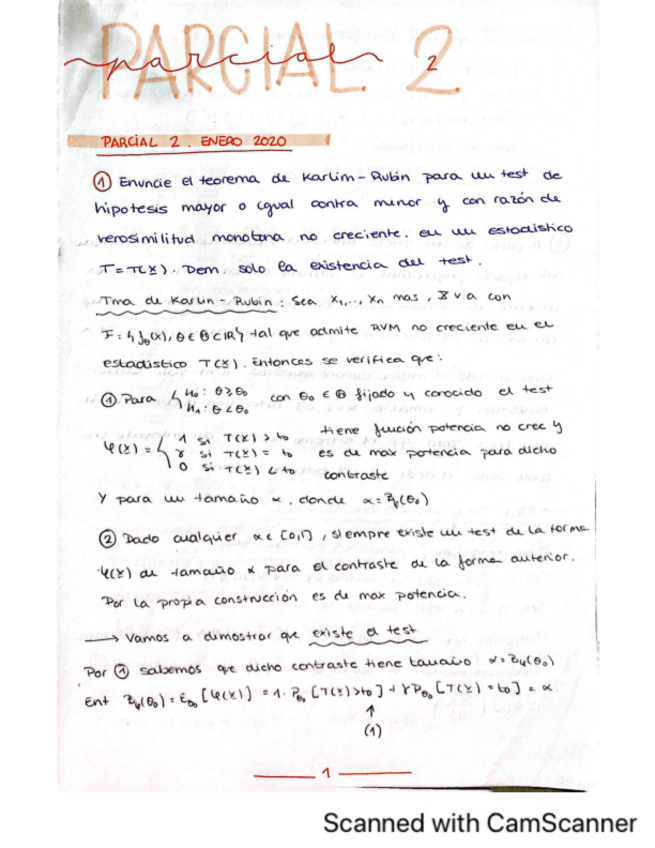 PARCIAL 2
parcial 2
PARCIAL 2. ENERO 2020
① Enuncie el teorema de Karlim-Rubin para un test de
hipotesis mayor o igual contra menor y con razón de
verosimilitud monotona no creciente. en un estadistico
T=T(X). Dem. solo la existencia del test.
Tma de Karlin-Rubin: Sea X₁,..., Xn mas, X v.a con
F={f_θ(x), θ∈Θ⊂ℝ} tal que admite RVM no creciente en el
estadistico T(X). Entonces se verifica que:
① Para { H₀: θ≥θ₀ con θ₀ ∈ Θ fijado y conocido el test
H₁: θ<θ₀
φ(X) = { 1 si T(X) > t₀ tiene función potencia no crec y
γ si T(X) = t₀ es de max potencia para dicho
0 si T(X) < t₀ contraste
Y para un tamaño α, donde α=β_φ(θ₀)
② Dado cualquier α∈[0,1], siempre existe un test de la forma
φ(X) de tamaño α para el contraste de la forma anterior.
Por la propia construcción es de max potencia.
→ Vamos a dimostrar que existe el test
Por ① sabemos que dicho contraste tiene tamaño α=β_φ(θ₀)
Ent β_φ(θ₀) = E_θ₀[φ(X)] = 1·P_θ₀[T(X)>t₀] + γP_θ₀[T(X)=t₀] = α
↑
(1)
1
Scanned with CamScanner